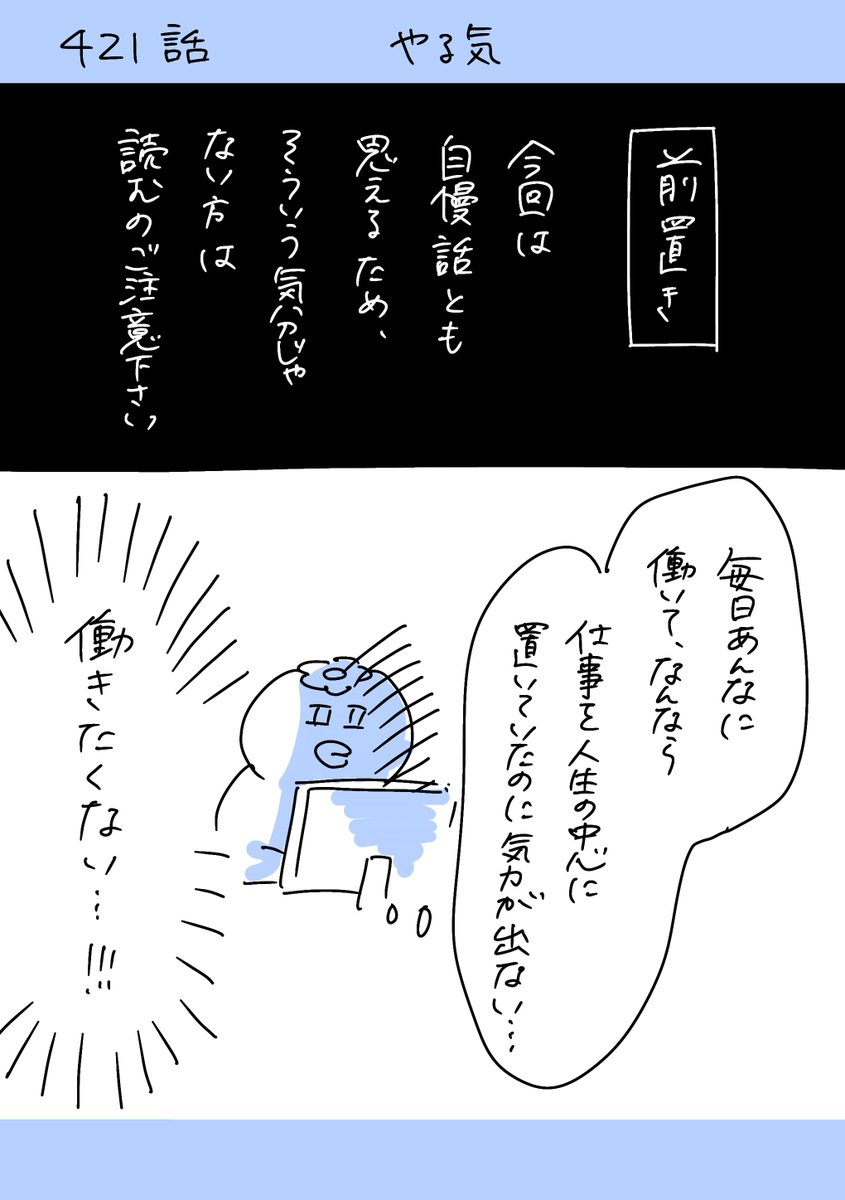 421話
やる気
前置き
今回は
自慢話とも
思えるため、
そういう気分じゃ
ない方は
読むのご注意下さい
毎日あんなに
働いて、なんなら
仕事を人生の中心に
置いていたのに気力が出ない…
働きたくない…!!!